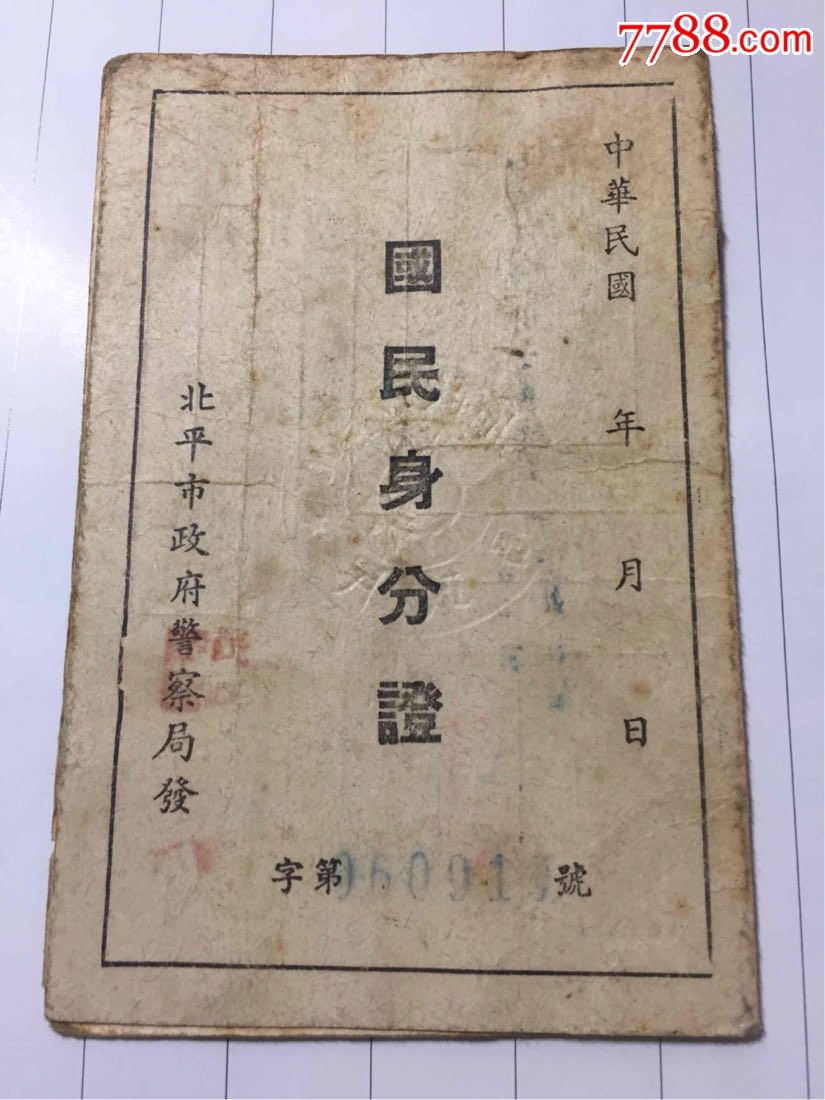 7788.com
中華民國　年　月　日
國民身分證
北平市政府警察局發
字第 號